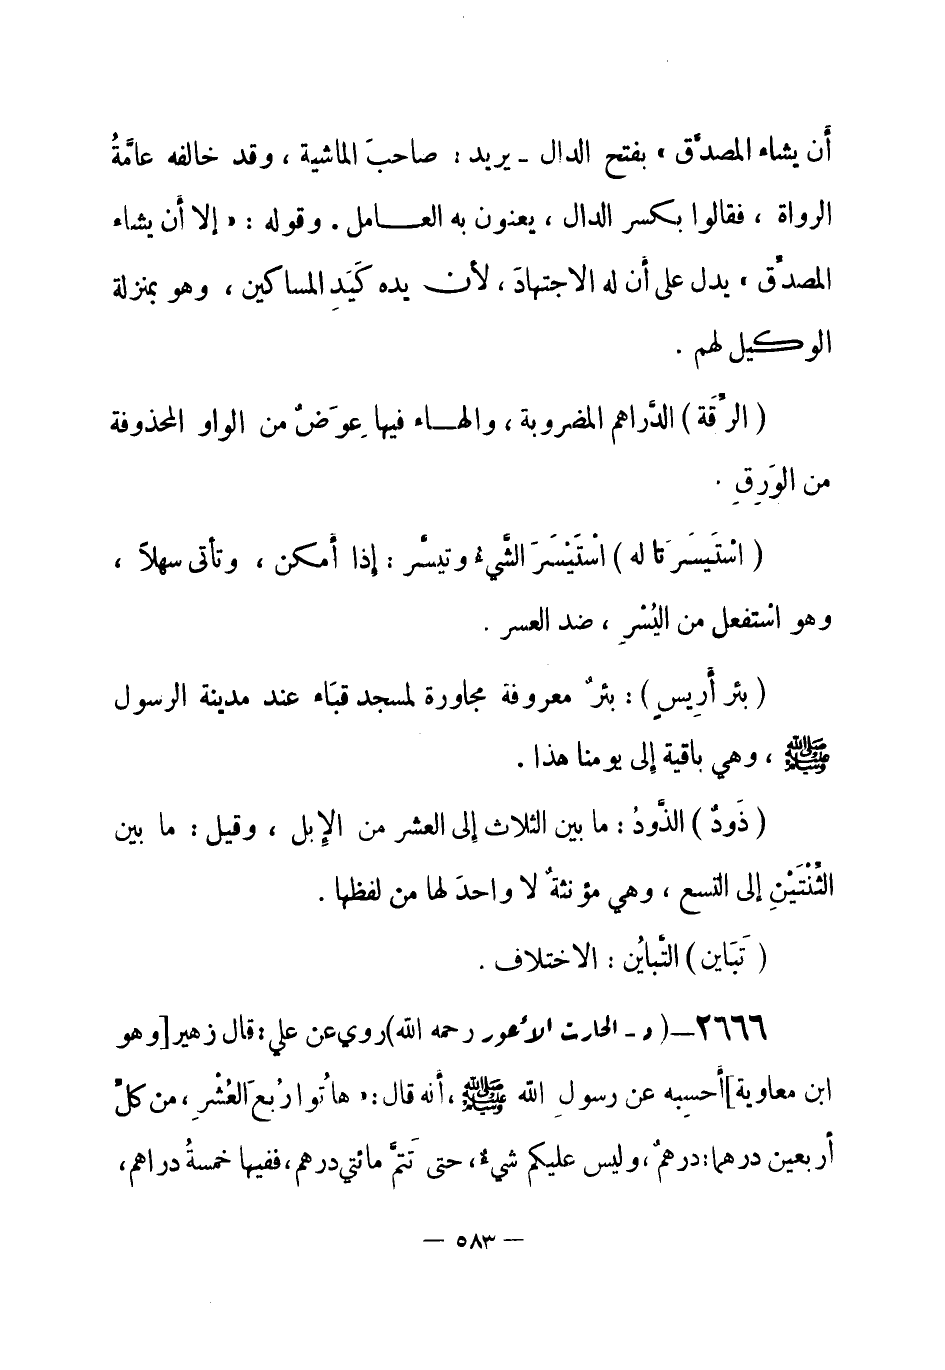 أَن يشاء المصدَّق » بفتح الدال ـ يريد : صاحبَ الماشية ، وقد خالفه عامَّةُ
الرواة ، فقالوا بكسر الدال ، يعنون به العـــامل . وقوله : « إلا أن يشاء
المصدِّق » يدل على أن له الاجتهادَ ، لأن يده كَيَدِ المساكين ، وهو بمنزلة
الوكيل لهم .
( الرِّقَة ) الدَّراهم المضروبة ، والهـــاء فيها عِوَضٌ من الواو المحذوفة
من الوَرِقِ .
( اسْتَيسَرَتا له ) اسْتَيْسَرَ الشَّيءُ وتيسَّر : إذا أمكن ، وتأتى سهلاً ،
وهو اسْتفعل من اليُسْرِ ، ضد العسر .
( بئر أَرِيسٍ ) : بئرٌ معروفة مجاورة لمسجد قبَاء عند مدينة الرسول
ﷺ ، وهي باقية إلى يومنا هذا .
( ذَودٌ ) الذَّودُ : ما بين الثلاث إلى العشر من الإبل ، وقيل : ما بين
الثِّنْتَيْنِ إلى التسع ، وهي مؤنثةٌ لا واحدَ لها من لفظها .
( تَبَاين ) التَّبايُن : الاختلاف .
٢٦٦٦ـ ( د ـ الحارث الأعور رحمه الله) روي عن علي : قال زهير [وهو
ابن معاوية] أحسِبه عن رسولِ الله ﷺ ، أنه قال : « هاتُوا رُبعَ العُشْرِ ، من كلِّ
أربعين درهما : درهمٌ ، وليس عليكم شيءٌ ، حتى تَتمَّ مائتي درهم ، ففيها خمسةُ دراهم ،
— ٥٨٣ —